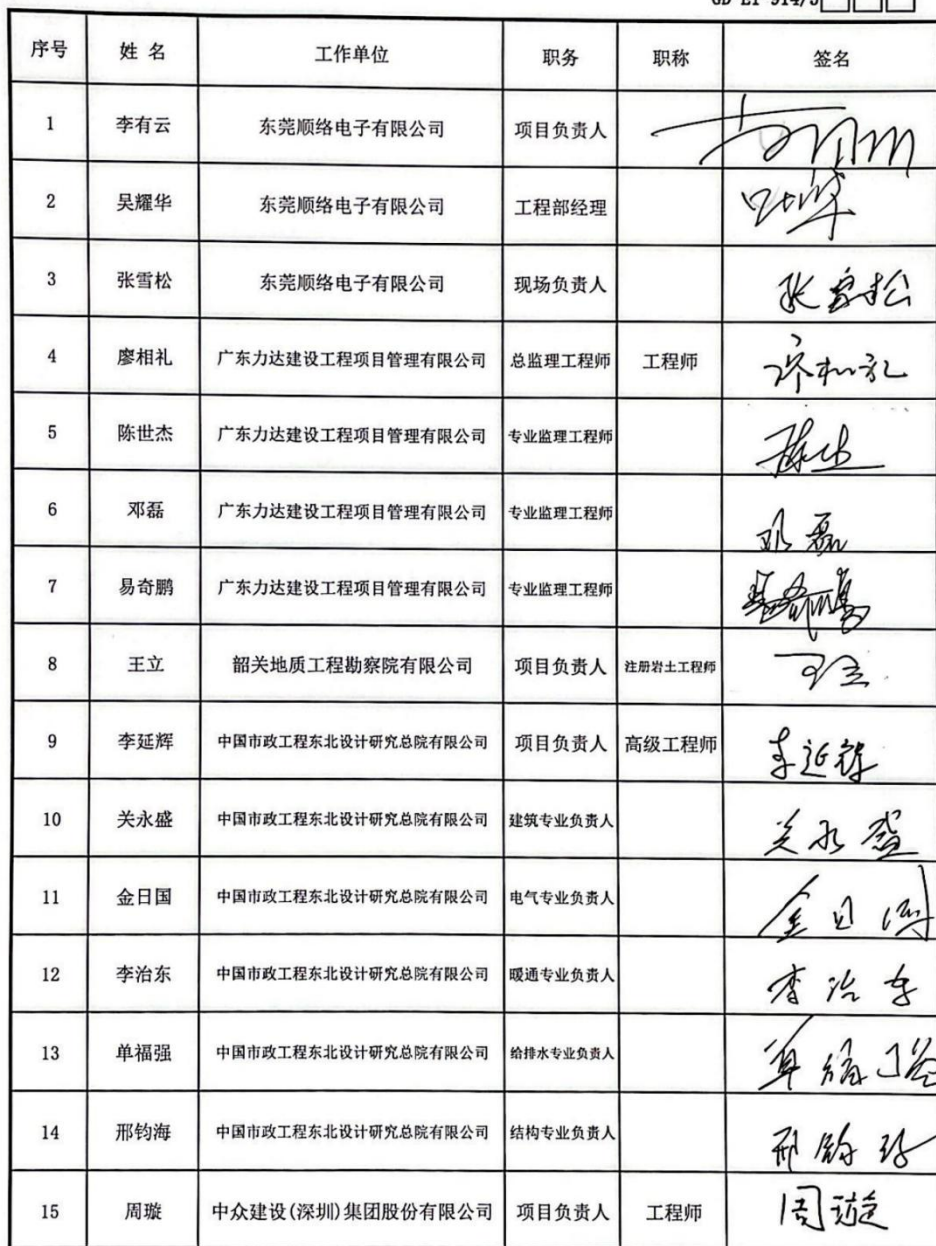 GD-E1-914/5
序号 姓 名 工作单位 职务 职称 签名
1 李有云 东莞顺络电子有限公司 项目负责人
2 吴耀华 东莞顺络电子有限公司 工程部经理
3 张雪松 东莞顺络电子有限公司 现场负责人 张雪松
4 廖相礼 广东力达建设工程项目管理有限公司 总监理工程师 工程师
5 陈世杰 广东力达建设工程项目管理有限公司 专业监理工程师
6 邓磊 广东力达建设工程项目管理有限公司 专业监理工程师 邓磊
7 易奇鹏 广东力达建设工程项目管理有限公司 专业监理工程师
8 王立 韶关地质工程勘察院有限公司 项目负责人 注册岩土工程师 王立
9 李延辉 中国市政工程东北设计研究总院有限公司 项目负责人 高级工程师 李延辉
10 关永盛 中国市政工程东北设计研究总院有限公司 建筑专业负责人 关永盛
11 金日国 中国市政工程东北设计研究总院有限公司 电气专业负责人 金日国
12 李治东 中国市政工程东北设计研究总院有限公司 暖通专业负责人 李治东
13 单福强 中国市政工程东北设计研究总院有限公司 给排水专业负责人 单福强
14 邢钧海 中国市政工程东北设计研究总院有限公司 结构专业负责人 邢钧海
15 周璇 中众建设(深圳)集团股份有限公司 项目负责人 工程师 周璇